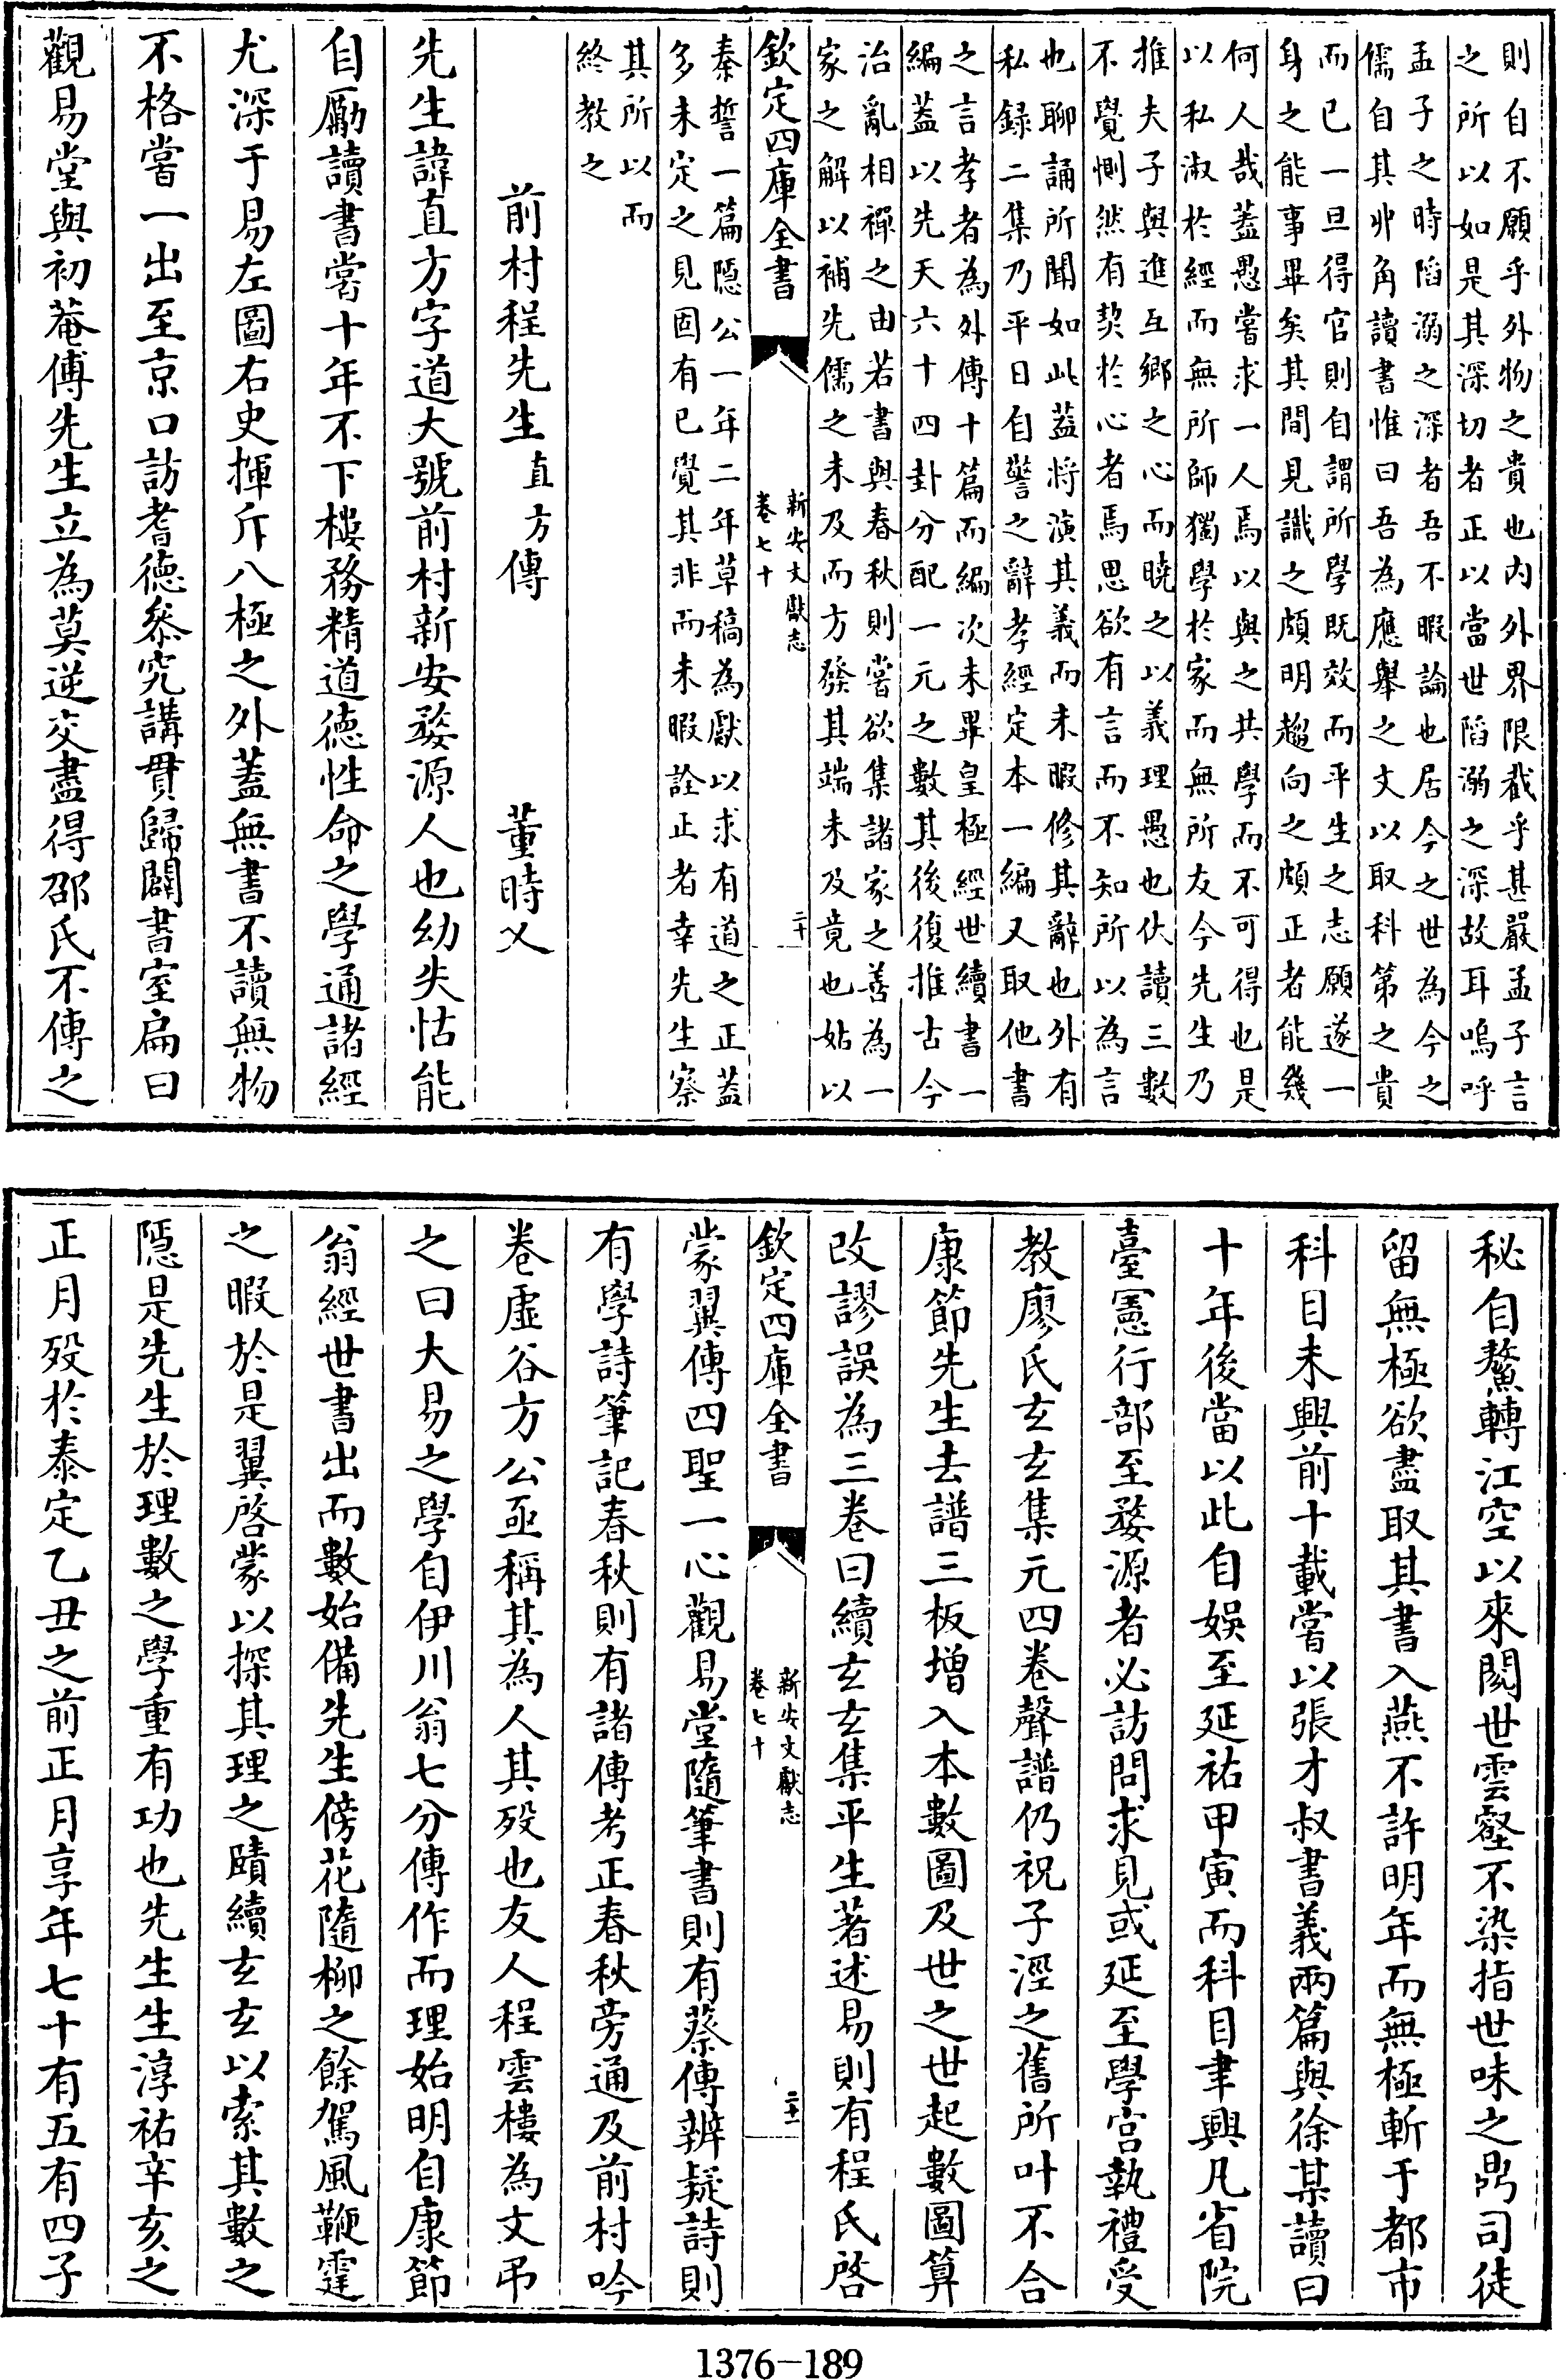 則自不願乎外物之貴也内外界限截乎甚嚴孟子言
之所以如是其深切者正以當世陷溺之深故耳嗚呼
孟子之時陷溺之深者吾不暇論也居今之世為今之
儒自其丱角讀書惟曰吾為應舉之文以取科第之貴
而已一旦得官則自謂所學既效而平生之志願遂一
身之能事畢矣其間見識之頗明趨向之頗正者能幾
何人哉蓋愚嘗求一人焉以與之共學而不可得也是
以私淑於經而無所師獨學於家而無所友今先生乃
推夫子與進互鄉之心而曉之以義理愚也伏讀三數
不覺惻然有契於心者焉思欲有言而不知所以為言
也聊誦所聞如此蓋將演其義而未暇修其辭也外有
私録二集乃平日自警之辭孝經定本一編又取他書
之言孝者為外傳十篇而編次未畢皇極經世續書一
編蓋以先天六十四卦分配一元之數其後復推古今
治亂相禪之由若書與春秋則嘗欲集諸家之善為一
家之解以補先儒之未及而方發其端未及竟也姑以
欽定四庫全書
新安文獻志
卷七十
二十
秦誓一篇隱公一年二年草稿為獻以求有道之正蓋
多未定之見固有已覺其非而未暇詮正者幸先生察
其所以而
終教之
前村程先生直方傳 董時乂
先生諱直方字道大號前村新安婺源人也幼失怙能
自勵讀書嘗十年不下樓務精道德性命之學通諸經
尤深于易左圖右史揮斥八極之外蓋無書不讀無物
不格嘗一出至京口訪耆德叅究講貫歸闢書室扁曰
觀易堂與初菴傅先生立為莫逆交盡得邵氏不傳之
秘自鰲轉江空以來閱世雲壑不染指世味之鼎司徒
留無極欲盡取其書入燕不許明年而無極斬于都市
科目未興前十載嘗以張才叔書義兩篇與徐某讀曰
十年後當以此自娱至延祐甲寅而科目聿興凡省院
臺憲行部至婺源者必訪問求見或延至學宫執禮受
教廖氏玄玄集元四卷聲譜仍祝子涇之舊所叶不合
康節先生去譜三板增入本數圖及世之世起數圖算
改謬誤為三卷曰續玄玄集平生著述易則有程氏啓
欽定四庫全書
新安文獻志
卷七十
二十一
蒙翼傳四聖一心觀易堂隨筆書則有蔡傳辨疑詩則
有學詩筆記春秋則有諸傳考正春秋旁通及前村吟
卷虛谷方公亟稱其為人其歿也友人程雲樓為文弔
之曰大易之學自伊川翁七分傳作而理始明自康節
翁經世書出而數始備先生傍花隨柳之餘駕風鞭霆
之暇於是翼啓蒙以探其理之賾續玄玄以索其數之
隱是先生於理數之學重有功也先生生淳祐辛亥之
正月歿於泰定乙丑之前正月享年七十有五有四子
1376-189